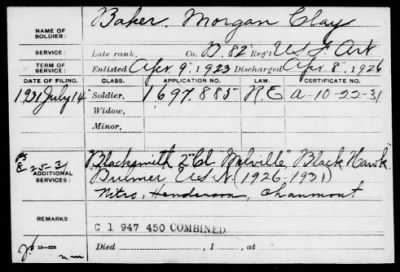 NAME OF SOLDIER: Baker, Morgan Clay
SERVICE: Late rank, Co. D. 82" Reg't U S F Art
TERM OF SERVICE: Enlisted Apr. 9, 1923 Discharged Apr. 8, 1926
DATE OF FILING. CLASS. APPLICATION NO. LAW. CERTIFICATE NO.
1931 July 14 Soldier, 1697.885 a-10-22-31
Widow,
Minor,
25-31
ADDITIONAL SERVICES: Blacksmith 2"Cl Melville" Black Hawk
U S N (1926-1931)
Nitro, Henderson, Chaumont
REMARKS:
C 1 947 450 COMBINED
Died , 1 , at